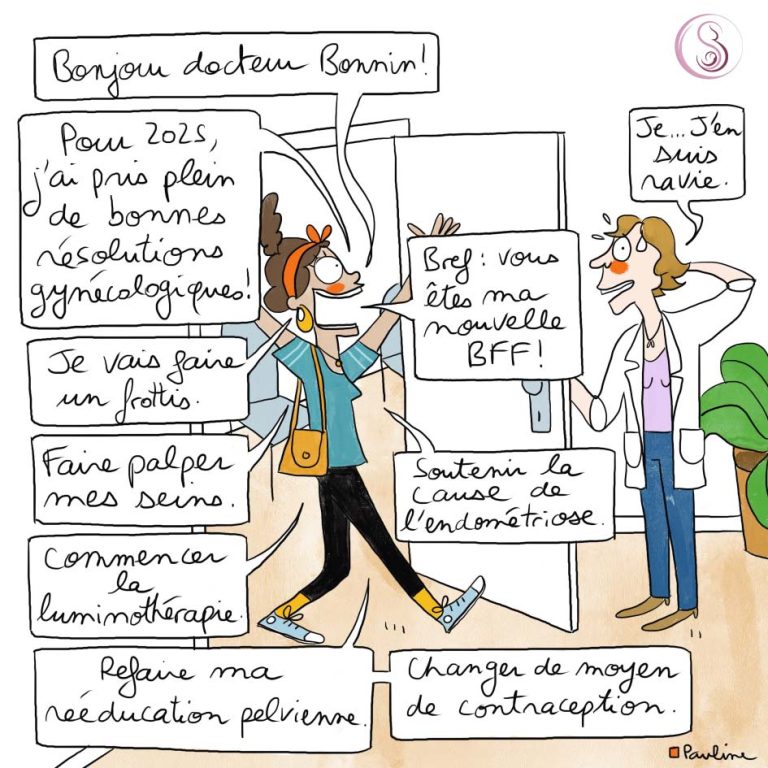 Bonjour docteur Bonnin!
Pour 2025,
j'ai pris plein
de bonnes
résolutions
gynécologiques!
Je vais faire
un frottis.
Faire palper
mes seins.
Commencer
la
luminothérapie.
Refaire ma
rééducation pelvienne.
Changer de moyen
de contraception.
Soutenir la
cause de
l'endométriose.
Bref: vous
êtes ma
nouvelle
BFF!
Je... J'en
suis
ravie.
Pauline